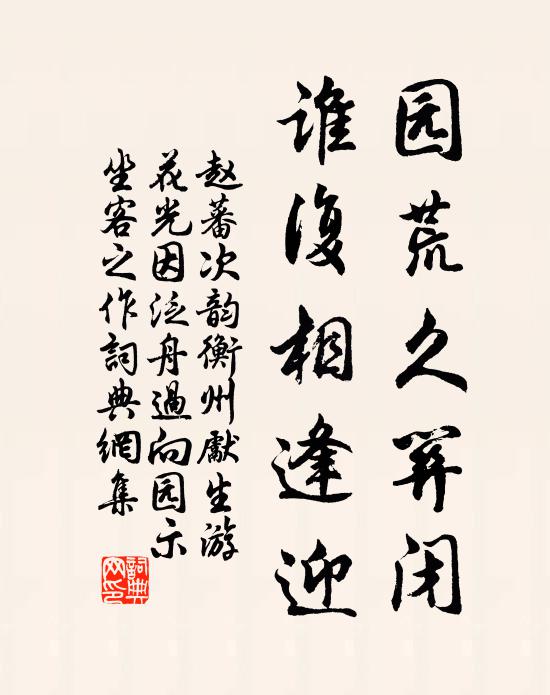 园荒久关闭
谁復相逢迎
赵蕃次韵衡州獻生游
花光因泛舟過向园示
坐客之作詞典網集
詞典
网印